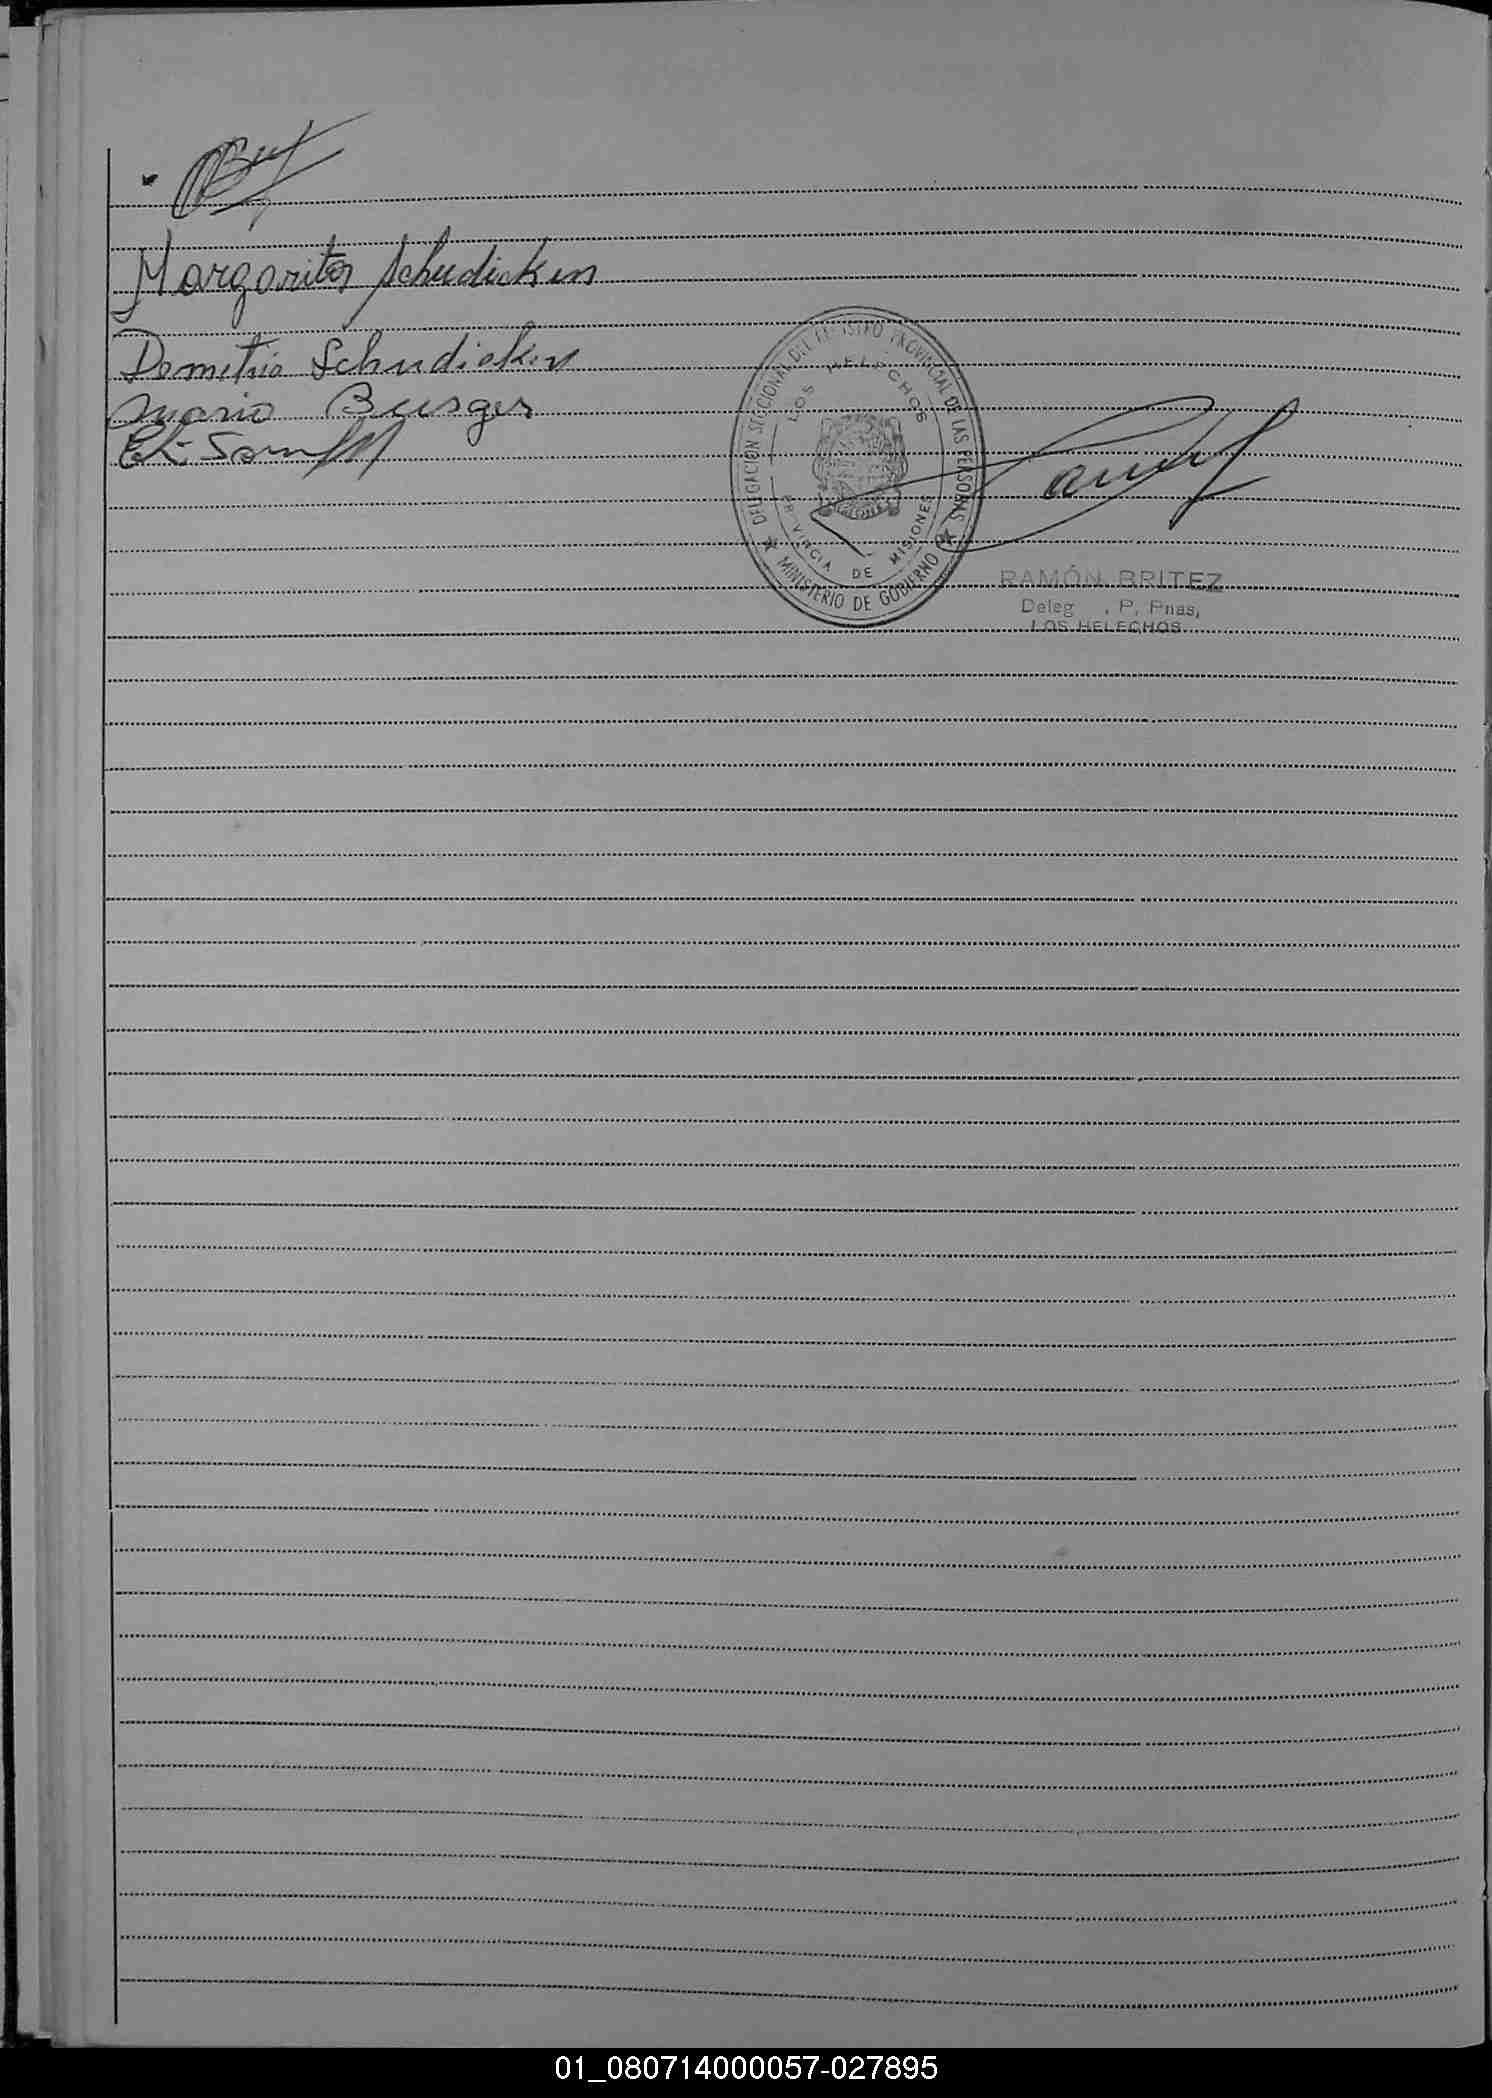 Margarita Schudicken
Demetrio Schudicken
Mario Burger
DELEGACION SECCIONAL DEL REGISTRO PROVINCIAL DE LAS PERSONAS
LOS HELECHOS
PROVINCIA DE MISIONES
★ MINISTERIO DE GOBIERNO ★
RAMÓN BRITEZ
Deleg , P. Pnas,
LOS HELECHOS
01_080714000057-027895